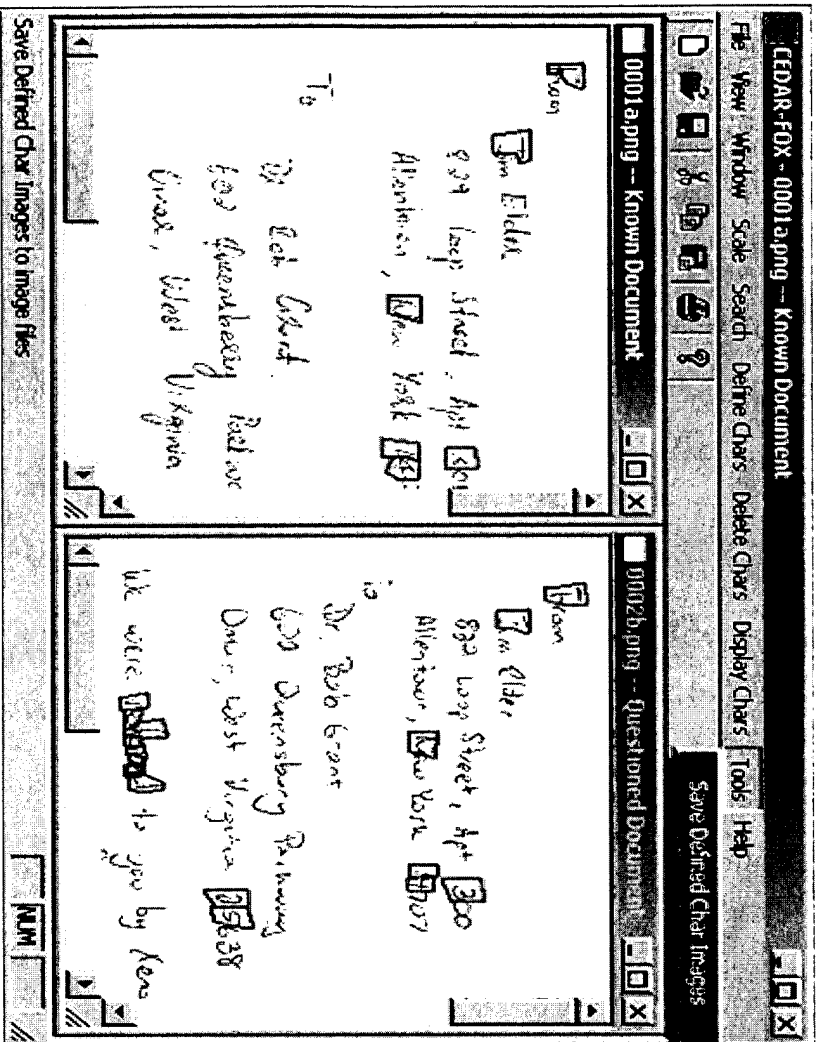 CEDAR-FOX - 0001a.png -- Known Document
File View Window Scale Search Define Chars Delete Chars Display Chars Tools Help
Save Defined Char Images
0001a.png -- Known Document
From
Jim Elder
829 Loop Street, Apt
Allentown, New York
To
Dr Bob Grant
602 Queensberry Parkwa
Omar, West Virginia
0002b.png -- Questioned Document
From
Jim Elder
829 Loop Street, Apt 300
Allentown, New York 14707
To
Dr. Bob Grant
602 Queensbury Parkway
Omar, West Virginia 25638
We were to you by Xena
Save Defined Char Images to image files
NUM